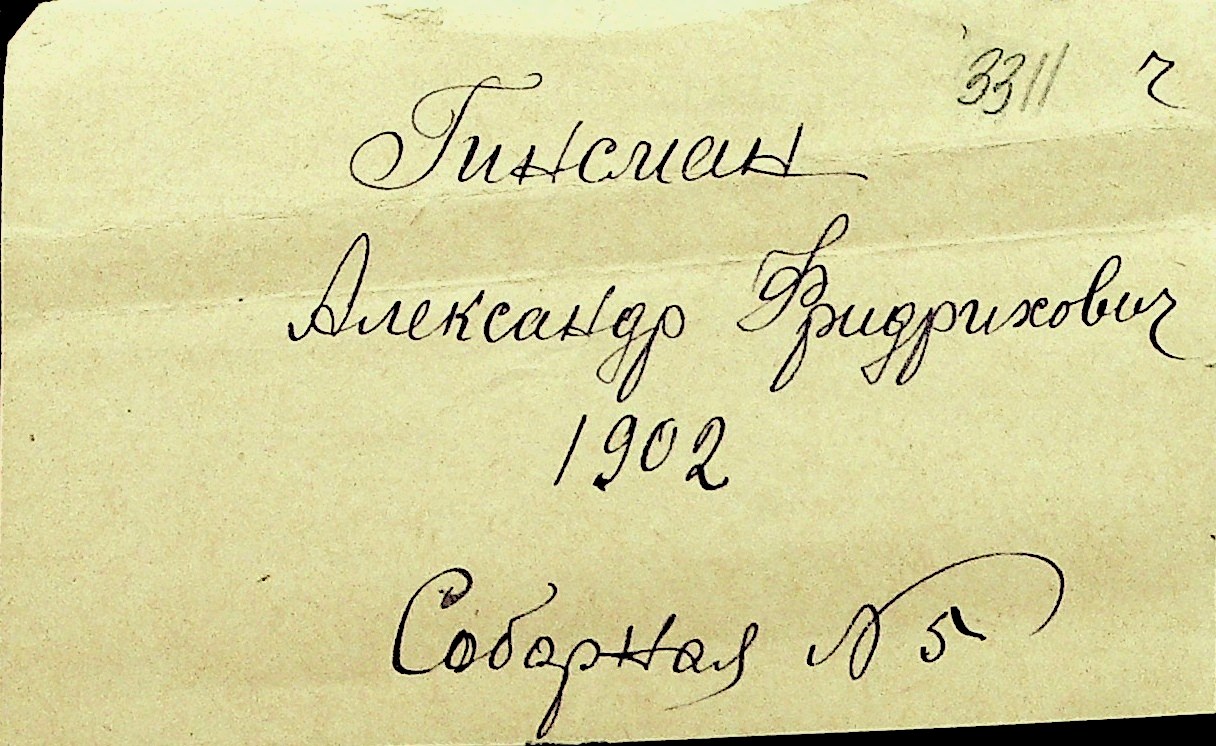 3311 ч
Гинсман
Александр Фридрихович
1902
Соборная N 5